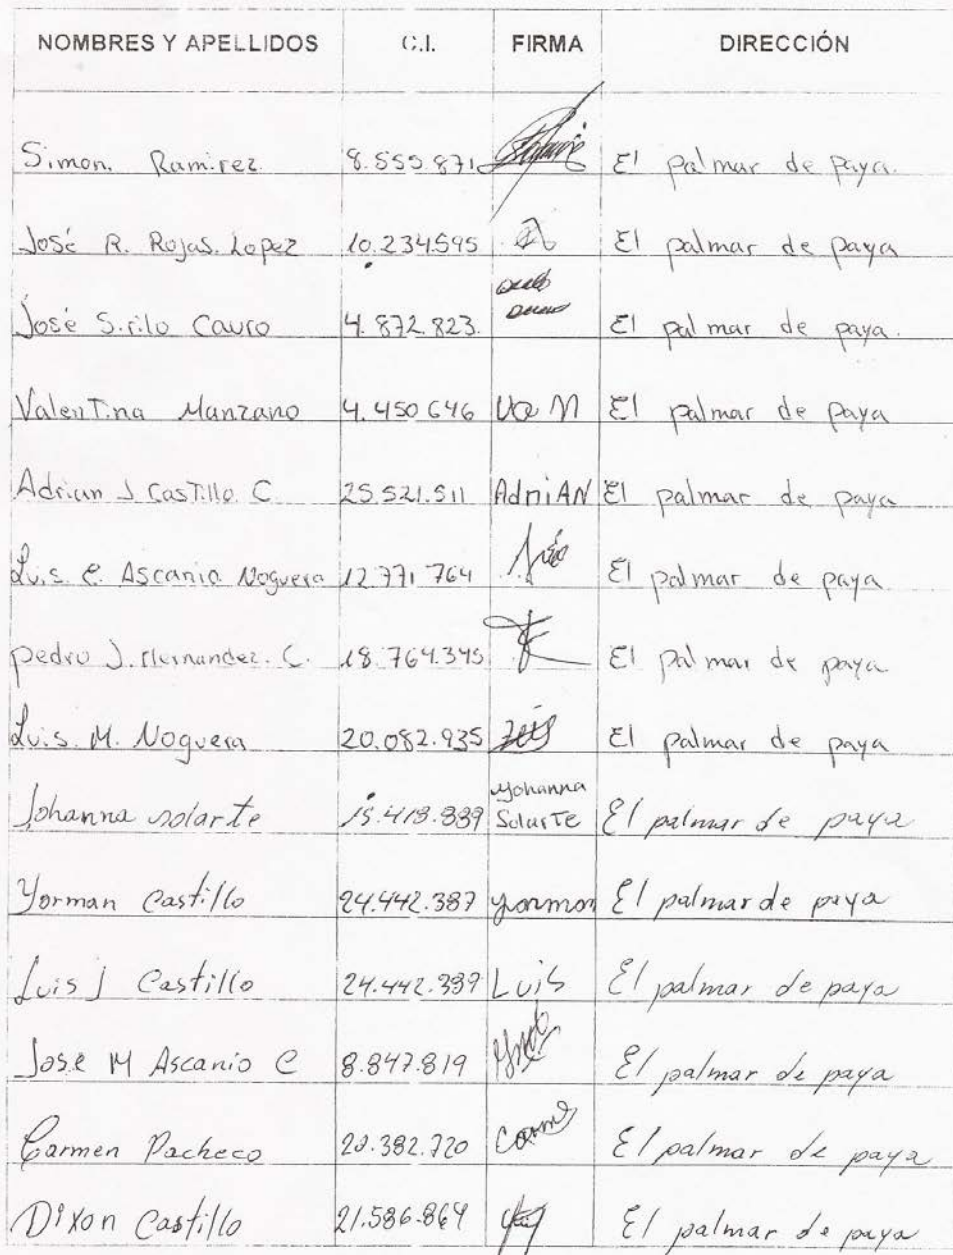 NOMBRES Y APELLIDOS C.I. FIRMA DIRECCIÓN
Simon Ramirez 8.555.871 El palmar de paya.
José R. Rojas. Lopez 10.234.595 El palmar de paya
José Sirilo Cauro 4.872.823. El palmar de paya.
Valentina Manzano 4.450 646 Va M El palmar de paya
Adrian J Castillo C 25.521.511 AdriAN El palmar de paya
Luis E. Ascanio Noguera 12.771.764 El palmar de paya
pedro J. Hernandez. C. 18.764.345 El palmar de paya
Luis. M. Noguera 20.082.935 El palmar de paya
Johanna solarte Yohanna Solarte El palmar de paya
Yorman Castillo 24.442.387 yorman El palmar de paya
Luis J Castillo 24.442.389 Luis El palmar de paya
Jose M Ascanio C 8.847.819 El palmar de paya
Carmen Pacheco El palmar de paya
Dixon Castillo 21.586.864 El palmar de paya